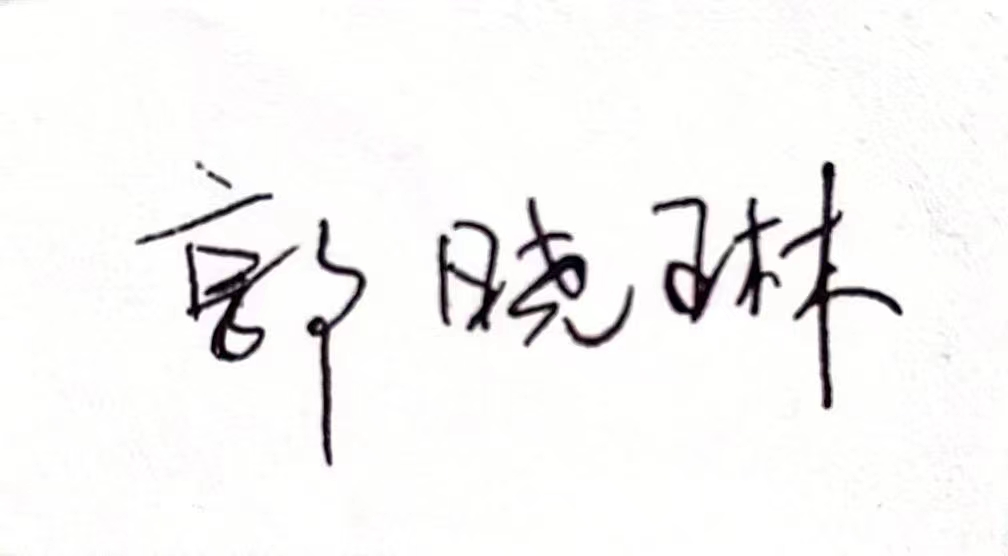 郭晓琳